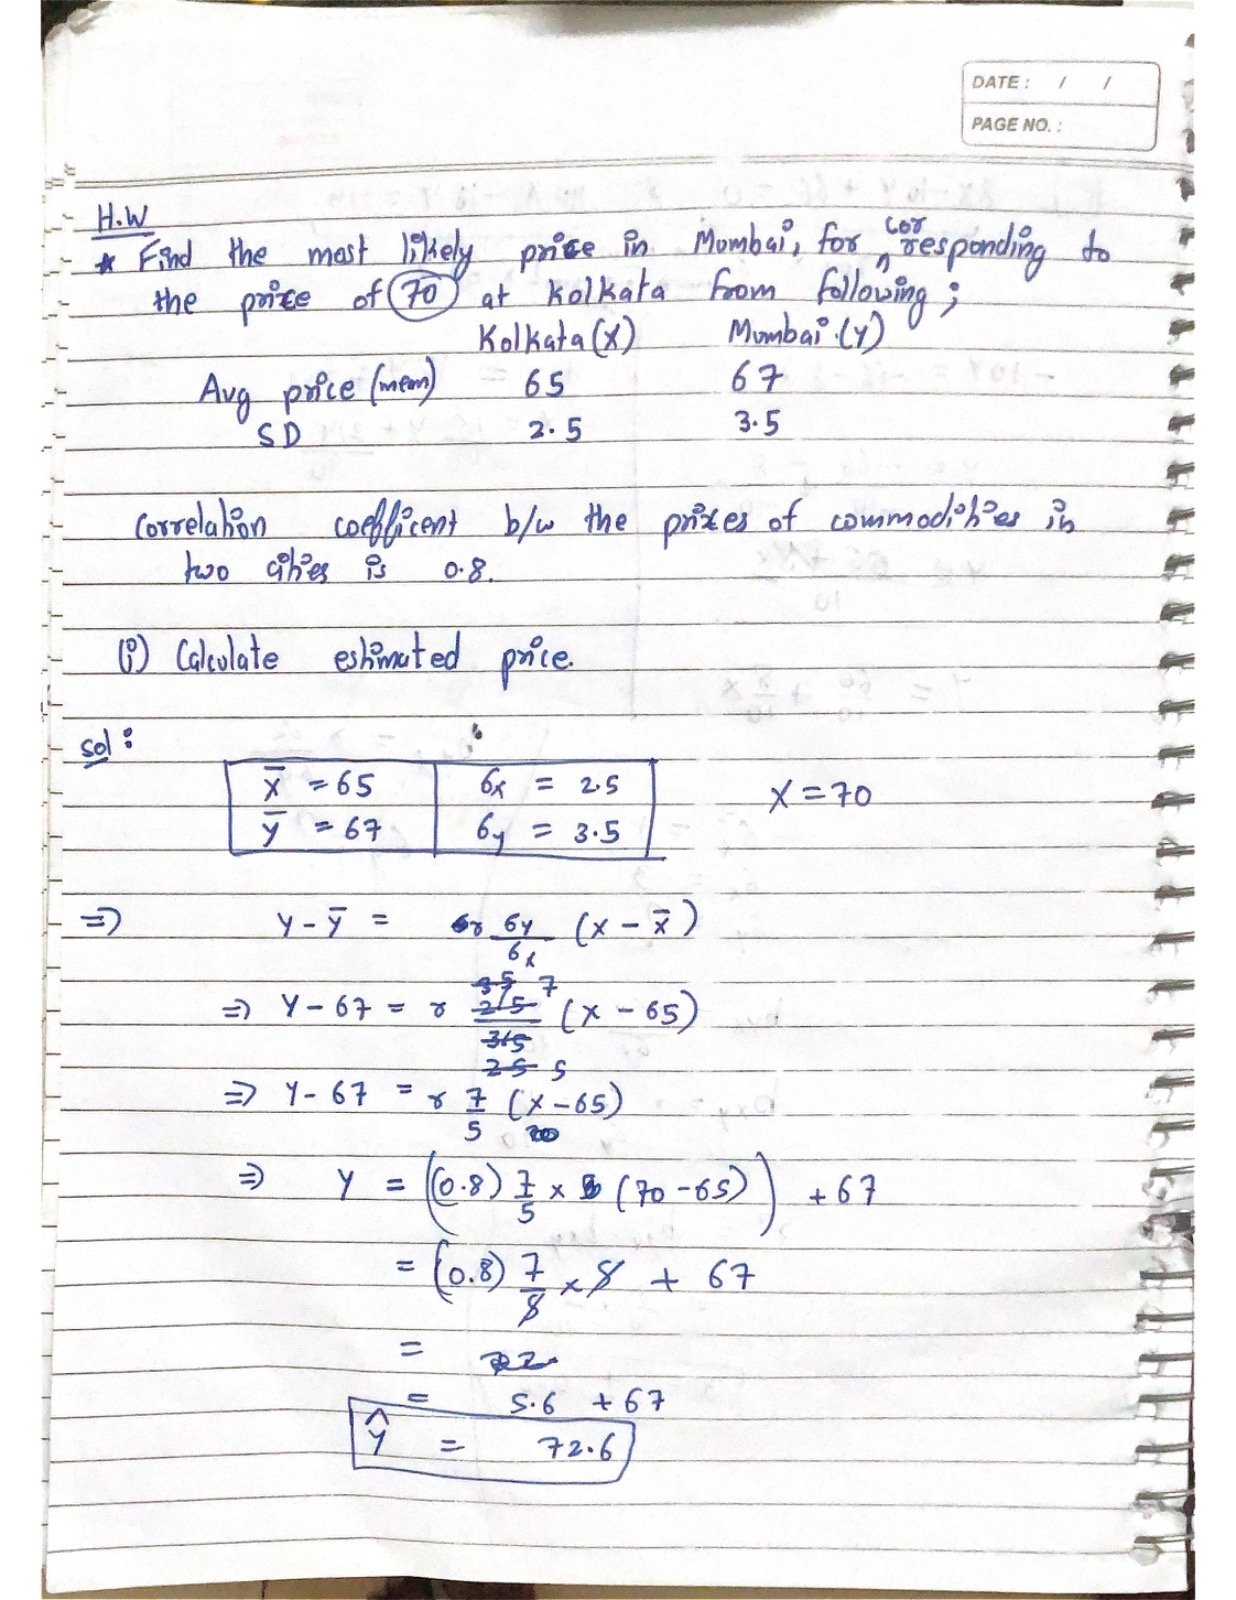 DATE : / /
PAGE NO. :
H.W
* Find the most likely price in Mumbai, for corresponding to
the price of 70 at Kolkata from following;
Kolkata (X) Mumbai (Y)
Avg price (mean) 65 67
SD 2.5 3.5
Correlation coefficent b/w the prices of commodities in
two cities is 0.8.
(i) Calculate estimated price.
Sol:
x̄ = 65 σx = 2.5 X = 70
ȳ = 67 σy = 3.5
⇒ Y - ȳ = r σy/σx (x - x̄)
⇒ Y - 67 = r 7/5 (x - 65)
⇒ Y - 67 = r 7/5 (x - 65)
⇒ Y = ((0.8) 7/5 × (70 - 65)) + 67
= (0.8) 7/5 × 5 + 67
=
= 5.6 + 67
Ŷ = 72.6